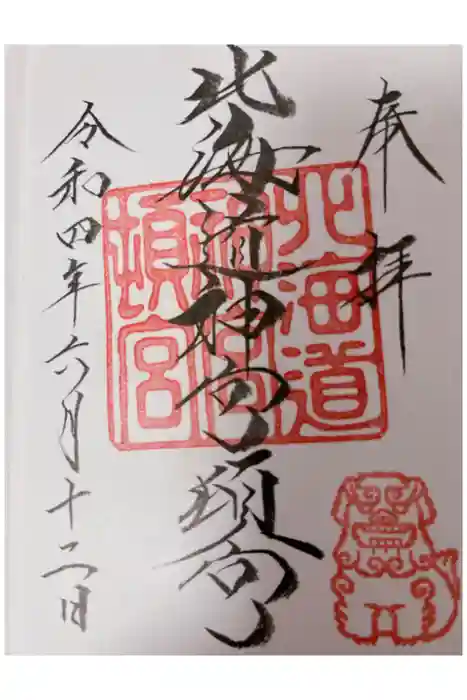 奉拝
北海道神宮頓宮
北海道
神宮
頓宮
令和四年六月十二日